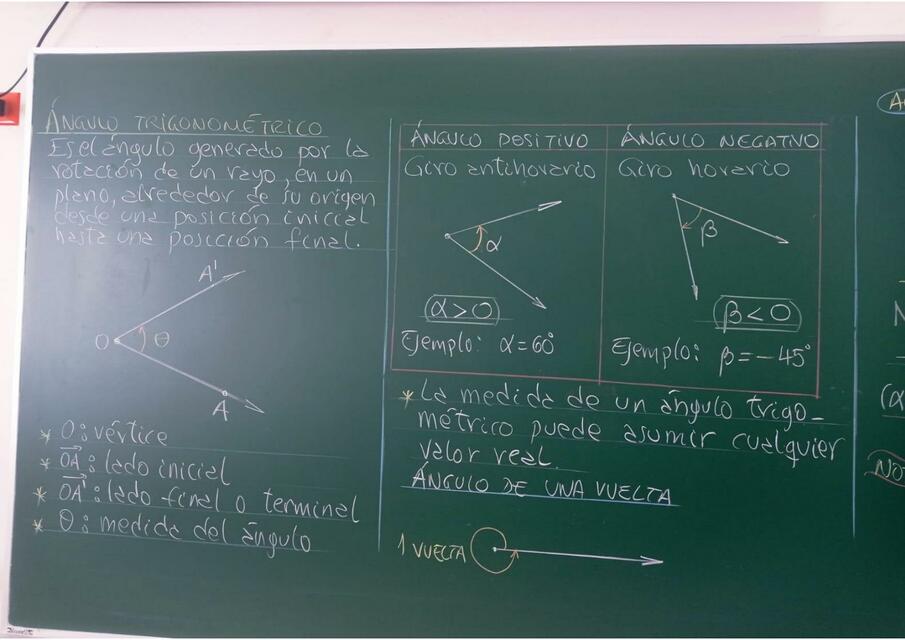 ÁNGULO TRIGONOMÉTRICO
Es el ángulo generado por la
rotación de un rayo, en un
plano, alrededor de su origen
desde una posición inicial
hasta una posición final.
A'
O θ
A
* O: vértice
* OA: lado inicial
* OA': lado final o terminal
* θ: medida del ángulo
ÁNGULO POSITIVO
Giro antihorario
α
α>0
Ejemplo: α=60°
ÁNGULO NEGATIVO
Giro horario
β
β<0
Ejemplo: β=-45°
* La medida de un ángulo trigo-
métrico puede asumir cualquier
valor real.
ÁNGULO DE UNA VUELTA
1 VUELTA